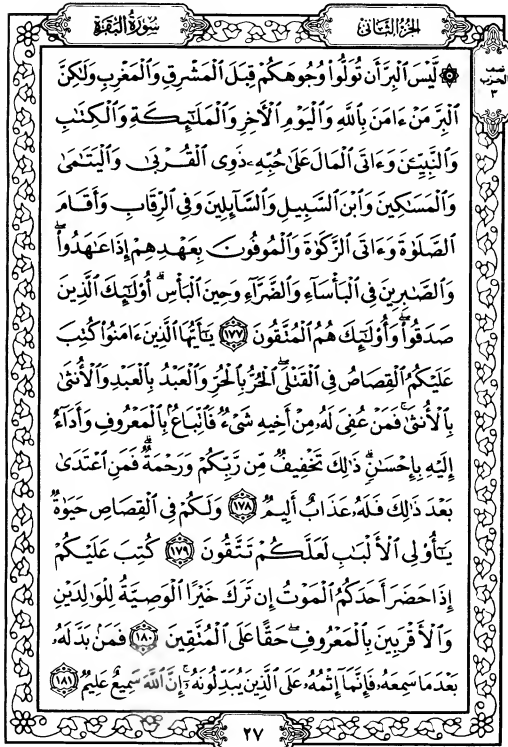 سُورَةُ البَقَرَةِ
الجُزْءُ الثَّانِي
نصف
الحزب
٣
۞ لَّيْسَ ٱلْبِرَّ أَن تُوَلُّوا۟ وُجُوهَكُمْ قِبَلَ ٱلْمَشْرِقِ وَٱلْمَغْرِبِ وَلَٰكِنَّ
ٱلْبِرَّ مَنْ ءَامَنَ بِٱللَّهِ وَٱلْيَوْمِ ٱلْأَخِرِ وَٱلْمَلَٰٓئِكَةِ وَٱلْكِتَٰبِ
وَٱلنَّبِيِّـۧنَ وَءَاتَى ٱلْمَالَ عَلَىٰ حُبِّهِۦ ذَوِى ٱلْقُرْبَىٰ وَٱلْيَتَٰمَىٰ
وَٱلْمَسَٰكِينَ وَٱبْنَ ٱلسَّبِيلِ وَٱلسَّآئِلِينَ وَفِى ٱلرِّقَابِ وَأَقَامَ
ٱلصَّلَوٰةَ وَءَاتَى ٱلزَّكَوٰةَ وَٱلْمُوفُونَ بِعَهْدِهِمْ إِذَا عَٰهَدُوا۟ ۖ
وَٱلصَّٰبِرِينَ فِى ٱلْبَأْسَآءِ وَٱلضَّرَّآءِ وَحِينَ ٱلْبَأْسِ ۗ أُو۟لَٰٓئِكَ ٱلَّذِينَ
صَدَقُوا۟ ۖ وَأُو۟لَٰٓئِكَ هُمُ ٱلْمُتَّقُونَ ١٧٧ يَٰٓأَيُّهَا ٱلَّذِينَ ءَامَنُوا۟ كُتِبَ
عَلَيْكُمُ ٱلْقِصَاصُ فِى ٱلْقَتْلَى ۖ ٱلْحُرُّ بِٱلْحُرِّ وَٱلْعَبْدُ بِٱلْعَبْدِ وَٱلْأُنثَىٰ
بِٱلْأُنثَىٰ ۚ فَمَنْ عُفِىَ لَهُۥ مِنْ أَخِيهِ شَىْءٌ فَٱتِّبَاعٌۢ بِٱلْمَعْرُوفِ وَأَدَآءٌ
إِلَيْهِ بِإِحْسَٰنٍ ۗ ذَٰلِكَ تَخْفِيفٌ مِّن رَّبِّكُمْ وَرَحْمَةٌ ۗ فَمَنِ ٱعْتَدَىٰ
بَعْدَ ذَٰلِكَ فَلَهُۥ عَذَابٌ أَلِيمٌ ١٧٨ وَلَكُمْ فِى ٱلْقِصَاصِ حَيَوٰةٌ
يَٰٓأُو۟لِى ٱلْأَلْبَٰبِ لَعَلَّكُمْ تَتَّقُونَ ١٧٩ كُتِبَ عَلَيْكُمْ
إِذَا حَضَرَ أَحَدَكُمُ ٱلْمَوْتُ إِن تَرَكَ خَيْرًا ٱلْوَصِيَّةُ لِلْوَٰلِدَيْنِ
وَٱلْأَقْرَبِينَ بِٱلْمَعْرُوفِ ۖ حَقًّا عَلَى ٱلْمُتَّقِينَ ١٨٠ فَمَنۢ بَدَّلَهُۥ
بَعْدَمَا سَمِعَهُۥ فَإِنَّمَآ إِثْمُهُۥ عَلَى ٱلَّذِينَ يُبَدِّلُونَهُۥٓ ۚ إِنَّ ٱللَّهَ سَمِيعٌ عَلِيمٌ ١٨١
٢٧